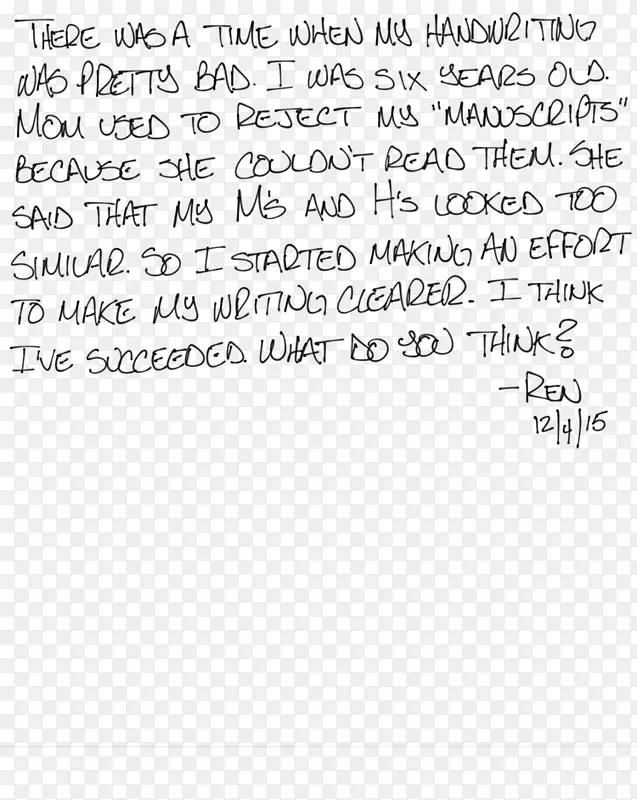 THERE WAS A TIME WHEN MY HANDWRITING
WAS PRETTY BAD. I WAS SIX YEARS OLD.
MOM USED TO REJECT MY "MANUSCRIPTS"
BECAUSE SHE COULDN'T READ THEM. SHE
SAID THAT MY M's AND H's LOOKED TOO
SIMILAR. SO I STARTED MAKING AN EFFORT
TO MAKE MY WRITING CLEARER. I THINK
I'VE SUCCEEDED. WHAT DO YOU THINK?
–REN
12/4/15